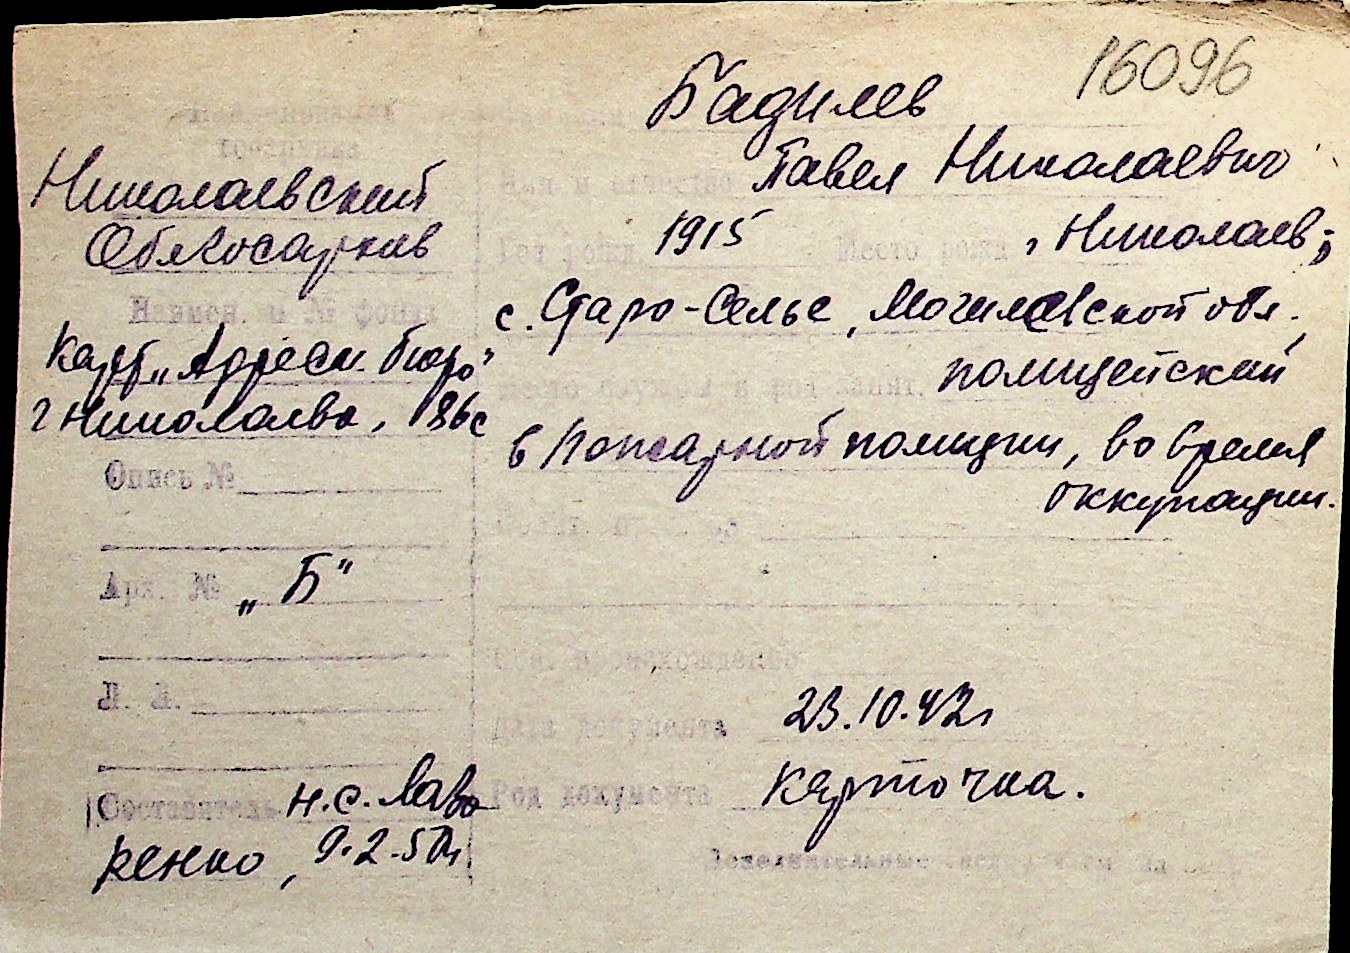 16096
Бадилев
Фамилия
Наименование
госархива
Николаевский
Облгосархив
Имя и отчество Павел Николаевич
Год рожд. 1915 Место рожд. г Николаев;
Наимен. и № фонда
с. Старо-Селье, Могилевской обл.,
Карт. „Адресн. бюро"
г Николаева, 186с
Место службы и род занят. полицейский
в пожарной полиции, во время
оккупации.
Опись №
Арх. № „Б"
Соц. происхождение
Л. Л.
Дата документа 23.10.42г
Род документа карточка.
Составитель н.с. Лавренко, 9.2.50г